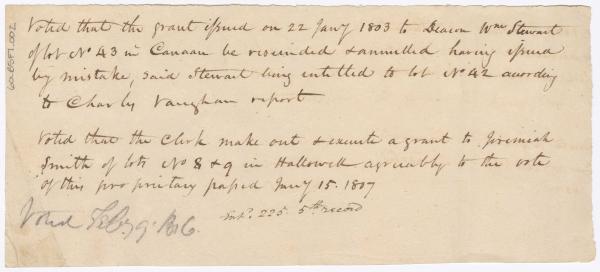 Voted that the grant issued on 22 Jany 1803 to Deacon Wm Stewart
of lot No 43 in Canaan be rescinded & annulled having issued
by mistake, said Stewart being intitled to lot No 42 acording
to Charles Vaughan report
Voted that the Clerk make out & execute a grant to Jeremiah
Smith of lots No 8 & 9 in Hallowell agreeably to the vote
of this proprietary passed Jany 15. 1807
Voted Feby 9. 
225. 5th record